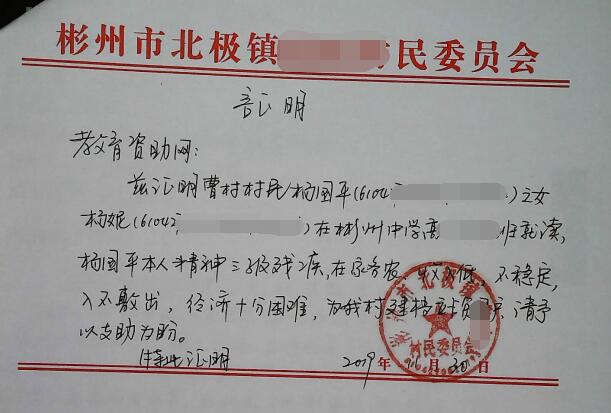 彬州市北极镇 民委员会
证明
教育资助网：
兹证明曹村村民杨国平(61042 )之女
杨妮(61042 )在彬州中学高 班就读，
杨国平本人精神三级残疾，在家务农，收入低，不稳定，
入不敷出，经济十分困难，为我村建档立 请予
以支助为盼。
特此证明 2019年 月30日
彬州市北极镇
村民委员会